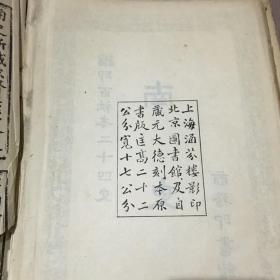 上海涵芬樓影印
北京圖書館及自
藏元大德刻本原
書版匡高二十二
公分寬十七公分